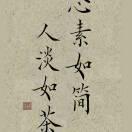 心素如简
人淡如茶